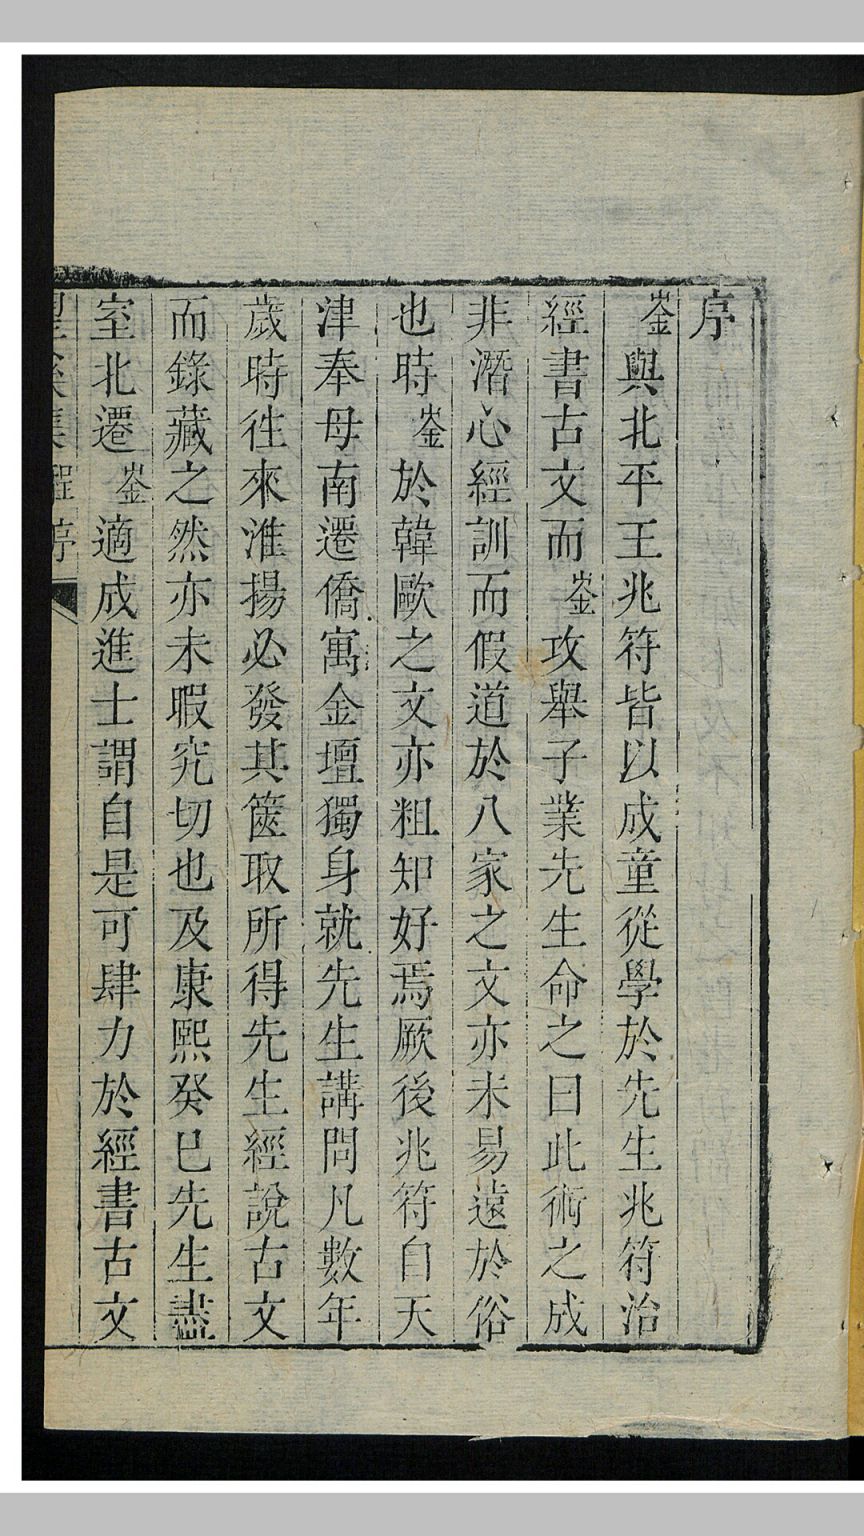 序
崟與北平王兆符皆以成童從學於先生兆符治
經書古文而崟攻舉子業先生命之曰此術之成
非潛心經訓而假道於八家之文亦未易遠於俗
也時崟於韓歐之文亦粗知好焉厥後兆符自天
津奉母南遷僑寓金壇獨身就先生講問凡數年
歲時往來淮揚必發其篋取所得先生經說古文
而錄藏之然亦未暇究切也及康熙癸巳先生盡
室北遷崟適成進士謂自是可肆力於經書古文
望溪集 程序